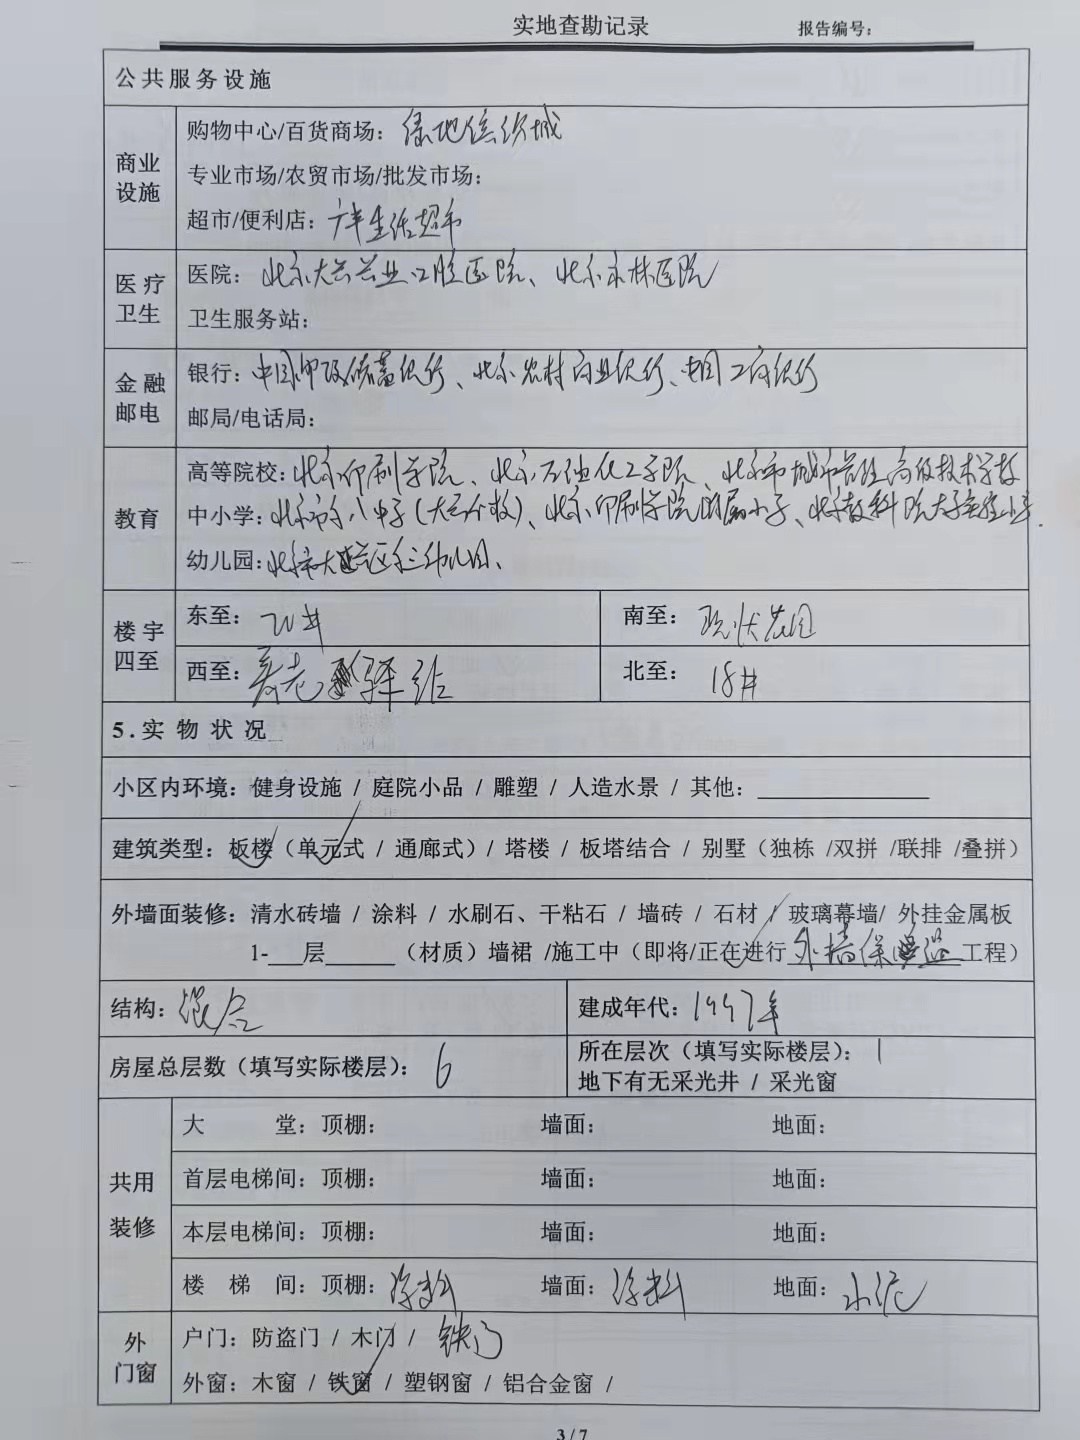 实地查勘记录
报告编号：
公共服务设施
商业设施
购物中心/百货商场：绿地缤纷城
专业市场/农贸市场/批发市场：
超市/便利店：生活超市
医疗卫生
医院：北京大兴兴业口腔医院、北京永林医院
卫生服务站：
金融邮电
银行：中国邮政储蓄银行、北京农村商业银行、中国工商银行
邮局/电话局：
教育
高等院校：北京印刷学院、北京石油化工学院、北京市城市管理高级技术学校
中小学：北京市第八中学（大兴分校）、北京印刷学院附属小学、北京教科院大兴实验小学.
幼儿园：北京市大兴区第三幼儿园、
楼宇四至
东至：20# 南至：现状花园
西至：养老驿站 北至：18#
5.实物状况
小区内环境：健身设施 / 庭院小品 / 雕塑 / 人造水景 / 其他：
建筑类型：板楼（单元式 / 通廊式）/ 塔楼 / 板塔结合 / 别墅（独栋 /双拼 /联排 /叠拼）
外墙面装修：清水砖墙 / 涂料 / 水刷石、干粘石 / 墙砖 / 石材 / 玻璃幕墙/ 外挂金属板
1-___层______（材质）墙裙 /施工中（即将/正在进行 外墙保温 工程）
结构：混合 建成年代：1997年
房屋总层数（填写实际楼层）：6 所在层次（填写实际楼层）：1
地下有无采光井 / 采光窗
共用装修
大堂：顶棚： 墙面： 地面：
首层电梯间：顶棚： 墙面： 地面：
本层电梯间：顶棚： 墙面： 地面：
楼梯间：顶棚：涂料 墙面：涂料 地面：水泥
外门窗
户门：防盗门 / 木门 / 铁门
外窗：木窗 / 铁窗 / 塑钢窗 / 铝合金窗 /
3 / 7